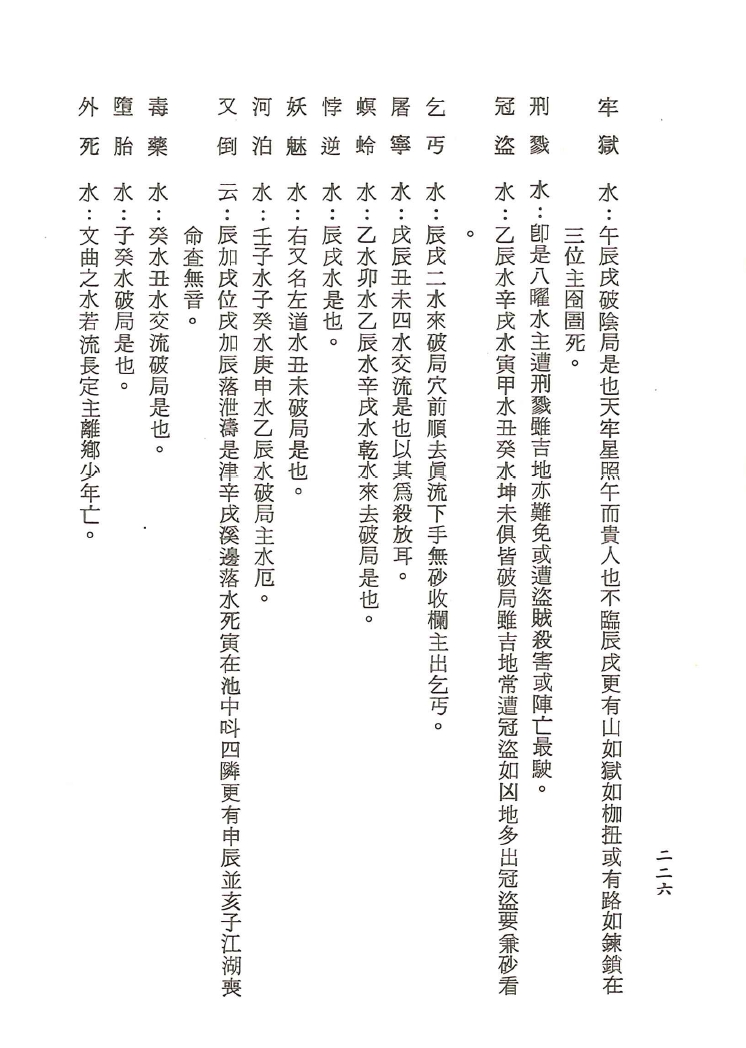 牢獄水：午辰戌破陰局是也天牢星照午而貴人也不臨辰戌更有山如獄如枷扭或有路如鍊鎖在
三位主囹圄死。
刑戮水：卽是八曜水主遭刑戮雖吉地亦難免或遭盜賊殺害或陣亡最駛。
冠盜水：乙辰水辛戌水寅甲水丑癸水坤未俱皆破局雖吉地常遭冠盜如凶地多出冠盜要兼砂看
。
乞丐水：辰戌二水來破局穴前順去眞流下手無砂收欄主出乞丐。
屠寧水：戌辰丑未四水交流是也以其爲殺放耳。
螟蛉水：乙水卯水乙辰水辛戌水乾水來去破局是也。
悖逆水：辰戌水是也。
妖魅水：右又名左道水丑未破局是也。
河泊水：壬子水子癸水庚申水乙辰水破局主水厄。
又倒云：辰加戌位戌加辰落泄濤是津辛戌溪邊落水死寅在池中呌四隣更有申辰並亥子江湖喪
命查無音。
毒藥水：癸水丑水交流破局是也。
墮胎水：子癸水破局是也。
外死水：文曲之水若流長定主離鄉少年亡。
二二六